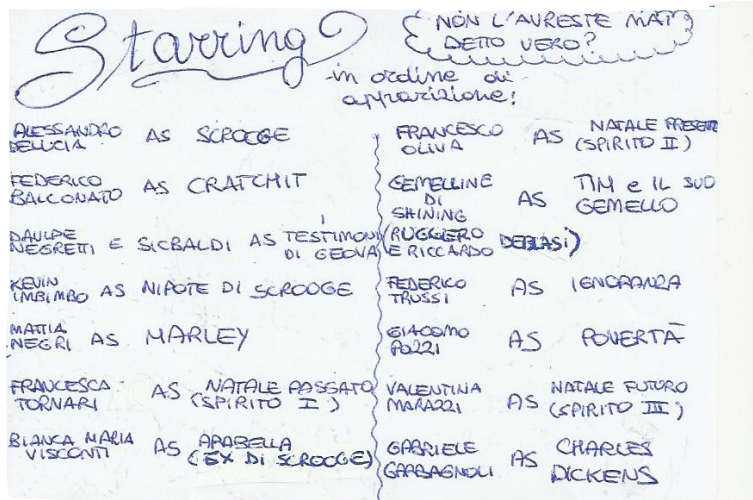 Starring
NON L'AVRESTE MAI
DETTO VERO?
in ordine di
apparizione:
ALESSANDRO
DELUCIA AS SCROOGE
FEDERICO
BALCONATO AS CRATCHIT
DAVIDE
NEGRETTI E SICBALDI AS TESTIMONI
DI GEOVA
KEVIN
IMBIMBO AS NIPOTE DI SCROOGE
MATTIA
NEGRI AS MARLEY
FRANCESCA
TORNARI AS NATALE PASSATO
(SPIRITO I)
BIANCA MARIA
VISCONTI AS ARABELLA
(EX DI SCROOGE)
FRANCESCO
OLIVA AS NATALE PRESENTE
(SPIRITO II)
GEMELLINE
DI
SHINING AS TIM e IL SUO
GEMELLO
(RUGGIERO
E RICCARDO DEBLASI)
FEDERICO
TRUSSI AS IGNORANZA
GIACOMO
POZZI AS POVERTÀ
VALENTINA
MARAZZI AS NATALE FUTURO
(SPIRITO III)
GABRIELE
GARBAGNOLI AS CHARLES
DICKENS